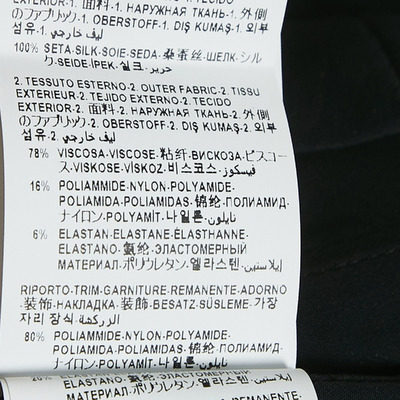 INTERIOR·1. 面料·1. НАРУЖНАЯ ТКАНЬ·1. 外側
のファブリック·1. OBERSTOFF·1. DIŞ KUMAŞ·1. 외부
섬유·1. ليف خارجي
100% SETA·SILK·SOIE·SEDA·桑蚕丝·ШЕЛК·シル
ク·SEIDE·İPEK·실크·حرير
2. TESSUTO ESTERNO·2. OUTER FABRIC·2. TISSU
EXTERIEUR·2. TEJIDO EXTERIOR·2. TECIDO
EXTERIOR·2. 面料·2. НАРУЖНАЯ ТКАНЬ·2. 外側
のファブリック·2. OBERSTOFF·2. DIŞ KUMAŞ·2. 외부
섬유·2. ليف خارجي
78% VISCOSA·VISCOSE·粘纤·ВИСКОЗА·ビスコー
ス·VISKOSE·VİSKOZ·비스코스·فيسكوز
16% POLIAMMIDE·NYLON·POLYAMIDE·
POLIAMIDA·POLIAMIDAS·锦纶·ПОЛИАМИД·
ナイロン·POLYAMİT·나일론·نايلون
6% ELASTAN·ELASTANE·ÉLASTHANNE·
ELASTANO·氨纶·ЭЛАСТОМЕРНЫЙ
МАТЕРИАЛ·ポリウレタン·엘라스텐·إيلاستين
RIPORTO·TRIM·GARNITURE·REMANENTE·ADORNO
·装饰·НАКЛАДКА·装飾·BESATZ·SÜSLEME·가장
자리 장식·الزركشة
80% POLIAMMIDE·NYLON·POLYAMIDE·
POLIAMIDA·POLIAMIDAS·锦纶·ПОЛИАМИД·
ナイロン·POLYAMİT·나일론·نايلون
20%
ELASTANO·氨纶·ЭЛАСТОМЕРНЫЙ
МАТЕРИАЛ·ポリウレタン·엘라스텐·إيلاستين